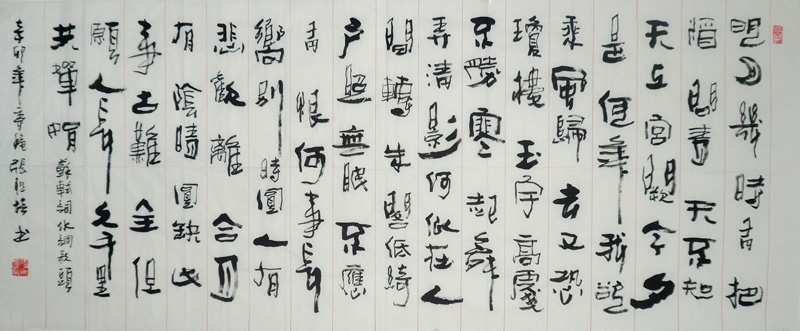 明月幾時有把
酒問青天不知
天上宮闕今夕
是何年我欲
乘風歸去又恐
瓊樓玉宇高處
不勝寒起舞
弄清影何似在人
間轉朱閣低綺
戶照無眠不應
有恨何事長
嚮別時圓人有
悲歡離合月
有陰晴圓缺此
事古難全但
願人長久千里
共嬋娟 蘇軾詞水調歌頭
辛卯年 張 書